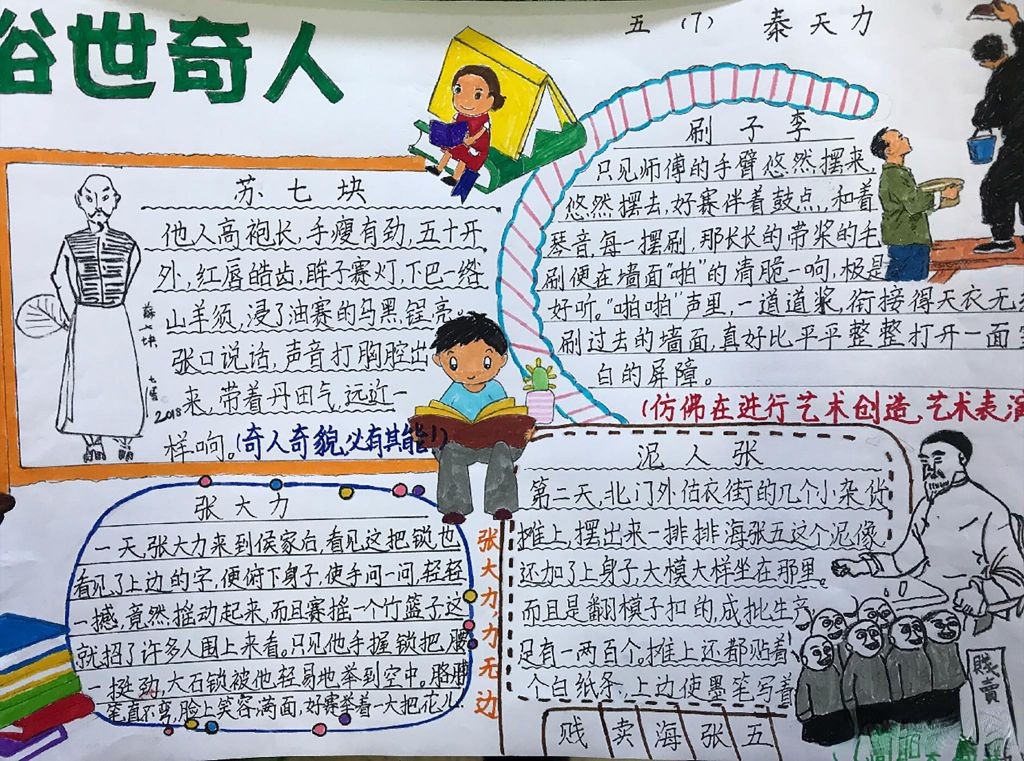 俗世奇人
五(7) 秦天力
苏七块
他人高袍长,手瘦有劲,五十开
外,红唇皓齿,眸子赛灯,下巴一绺
山羊须,浸了油赛的乌黑锃亮。
张口说话,声音打胸腔出
来,带着丹田气,远近一
样响。(奇人奇貌,必有其能!)
苏七块
2018
刷子李
只见师傅的手臂悠然摆来,
悠然摆去,好赛伴着鼓点,和着
琴音,每一摆刷,那长长的带浆的毛
刷便在墙面“啪”的清脆一响,极是
好听。“啪啪”声里,一道道浆,衔接得天衣无
刷过去的墙面,真好比平平整整打开一面
白的屏障。
(仿佛在进行艺术创造,艺术表演
张大力
一天,张大力来到侯家后,看见这把锁,也
看见了上边的字,便俯下身子,使手问一问,轻轻
一撼,竟然摇动起来,而且赛摇一个竹篮子,这
就招了许多人围上来看。只见他手握锁把,腰
一挺劲,大石锁被他轻易地举到空中。胳膊
笔直不弯,脸上笑容满面,好赛举着一大把花儿
张大力力无边
泥人张
第二天,北门外估衣街的几个小杂货
摊上,摆出来一排排海张五这个泥像,
还加了上身子,大模大样坐在那里。
而且是翻模子扣的,成批生产,
足有一两百个。摊上还都贴着
个白纸条,上边使墨笔写着
贱卖海张五
贱賣